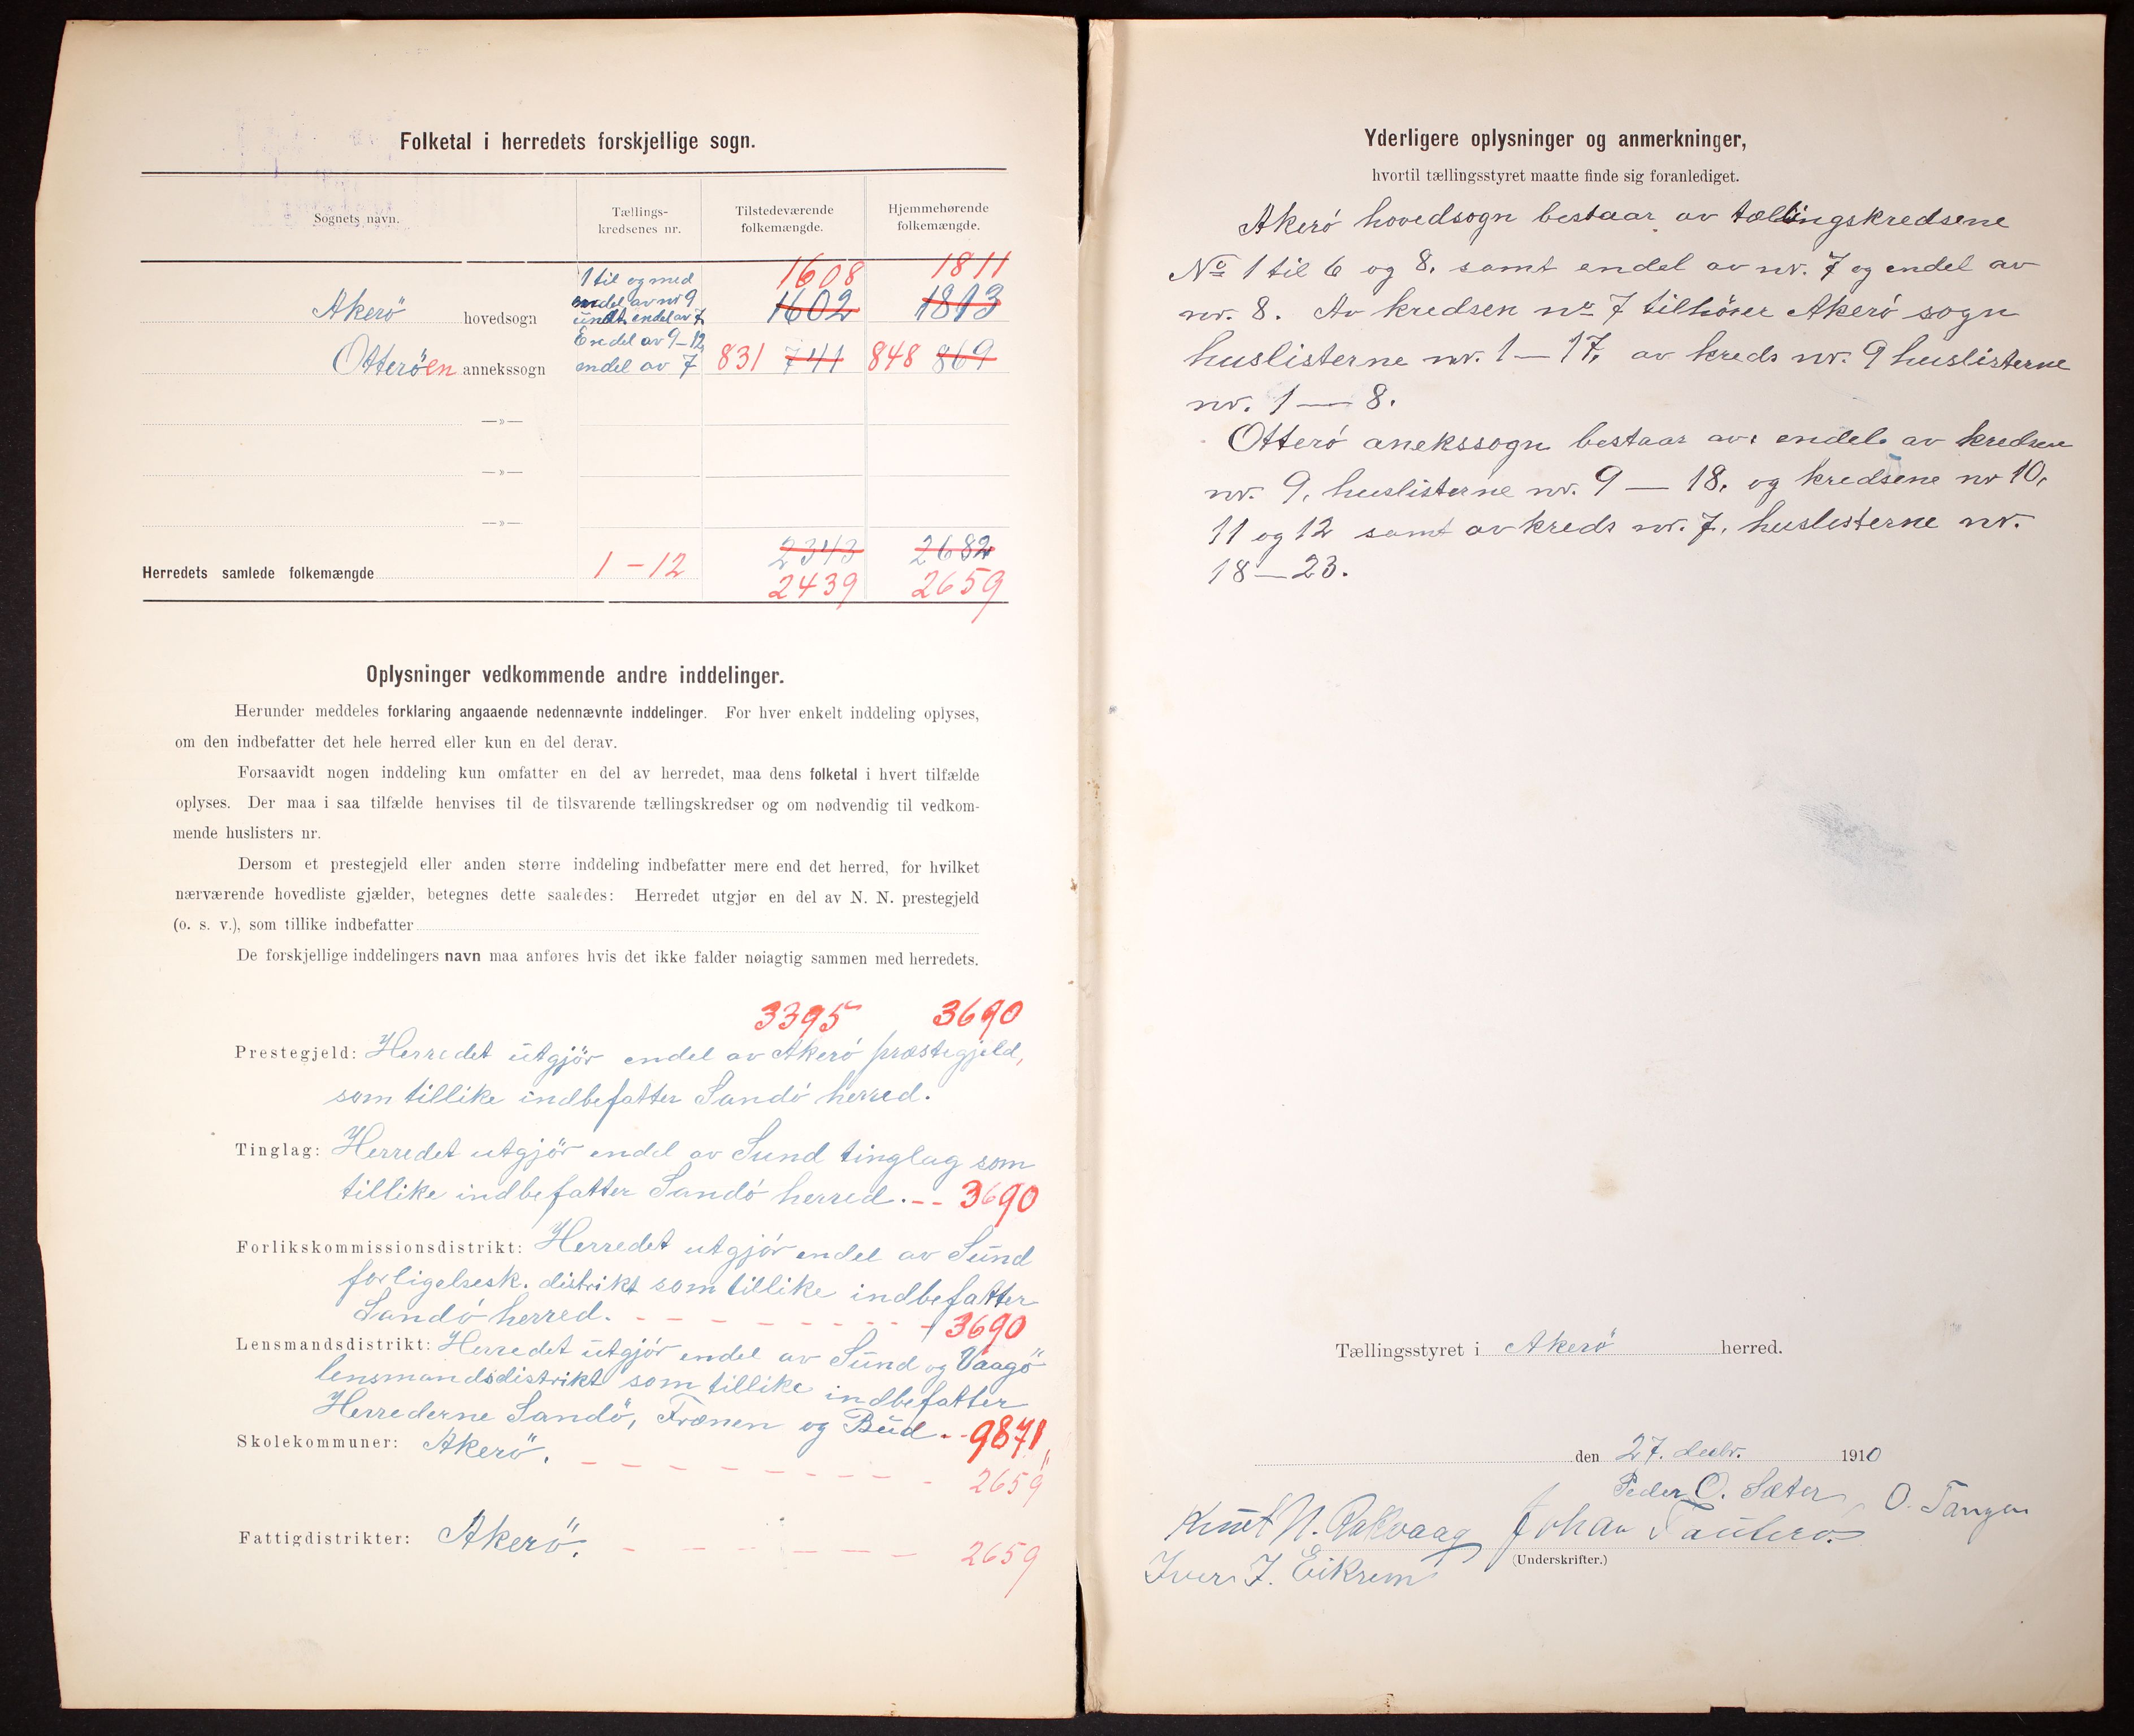 Folketal i herredets forskjellige sogn.
Sognets navn.
Tællings-
kredsenes nr.
Tilstedeværende
folkemængde.
Hjemmehørende
folkemængde.
1 til og med 1608 1811
endel av nr 9
Akerö hovedsogn undt. endel av 7 1602 1813
Endel av 9-12
Otteröen annekssogn endel av 7 831 741 848 869
—»—
—»—
—»—
2343 2682
Herredets samlede folkemængde 1-12
2439 2659
Oplysninger vedkommende andre inddelinger.
Herunder meddeles forklaring angaaende nedennævnte inddelinger. For hver enkelt inddeling oplyses,
om den indbefatter det hele herred eller kun en del derav.
Forsaavidt nogen inddeling kun omfatter en del av herredet, maa dens folketal i hvert tilfælde
oplyses. Der maa i saa tilfælde henvises til de tilsvarende tællingskredser og om nødvendig til vedkom-
mende huslisters nr.
Dersom et prestegjeld eller anden større inddeling indbefatter mere end det herred, for hvilket
nærværende hovedliste gjælder, betegnes dette saaledes: Herredet utgjør en del av N. N. prestegjeld
(o. s. v.), som tillike indbefatter
De forskjellige inddelingers navn maa anføres hvis det ikke falder nøiagtig sammen med herredets.
3395 3690
Prestegjeld: Herredet utgjör endel av Akerö præstegjeld,
som tillike indbefatter Sandö herred.
Tinglag: Herredet utgjör endel av Sund tinglag som
tillike indbefatter Sandö herred. -- 3690
Forlikskommissionsdistrikt: Herredet utgjör endel av Sund
forligelsesk. distrikt som tillike indbefatter
Sandö herred. - - - - - - - - - 3690
Lensmandsdistrikt: Herredet utgjör endel av Sund og Vaagö
lensmandsdistrikt som tillike indbefatter
Herrederne Sandö, Frænen og Bud. -- 9871
Skolekommuner: Akerö. - - - - - - - - - 2659
Fattigdistrikter: Akerö. - - - - - - - 2659
Yderligere oplysninger og anmerkninger,
hvortil tællingsstyret maatte finde sig foranlediget.
Akerö hovedsogn bestaar av tællingskredsene
No 1 til 6 og 8. samt endel av nr. 7 og endel av
nr. 8. Av kredsen nr 7 tilhörer Akerö sogn
huslisterne nr. 1 — 17, av kreds nr. 9 huslisterne
nr. 1 — 8.
Otterö anekssogn bestaar av: endel av kredsen
nr. 9, huslisterne nr. 9 — 18, og kredsene nr 10,
11 og 12 samt av kreds nr. 7, huslisterne nr.
18 — 23.
Tællingsstyret i Akerö herred.
den 27. decbr. 1910
Peder O. Sæter O. Tangen
Knut N. Rakvaag Johan
Iver J. Eikrem
(Underskrifter.)